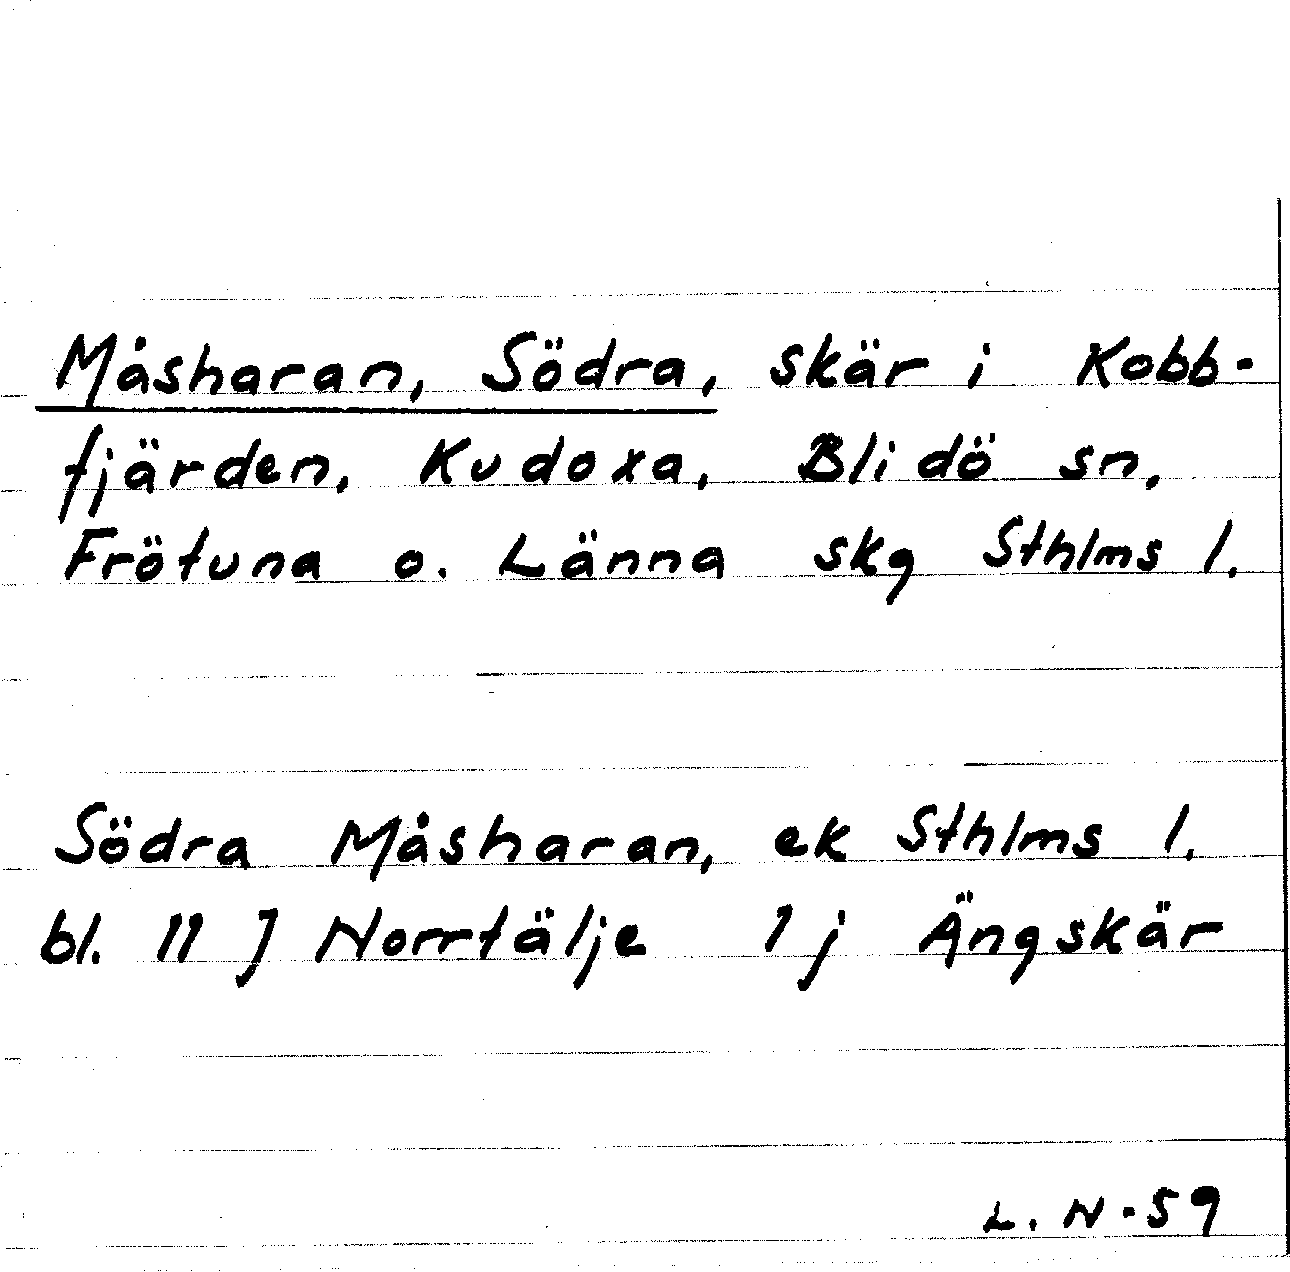 Måsharan, Södra, skär i Kobb-
fjärden, Kudoxa, Blidö sn,
Frötuna o. Länna skg Sthlms l.
Södra Måsharan, ek Sthlms l.
bl. 11 J Norrtälje 1 j Ängskär
L. N - 59